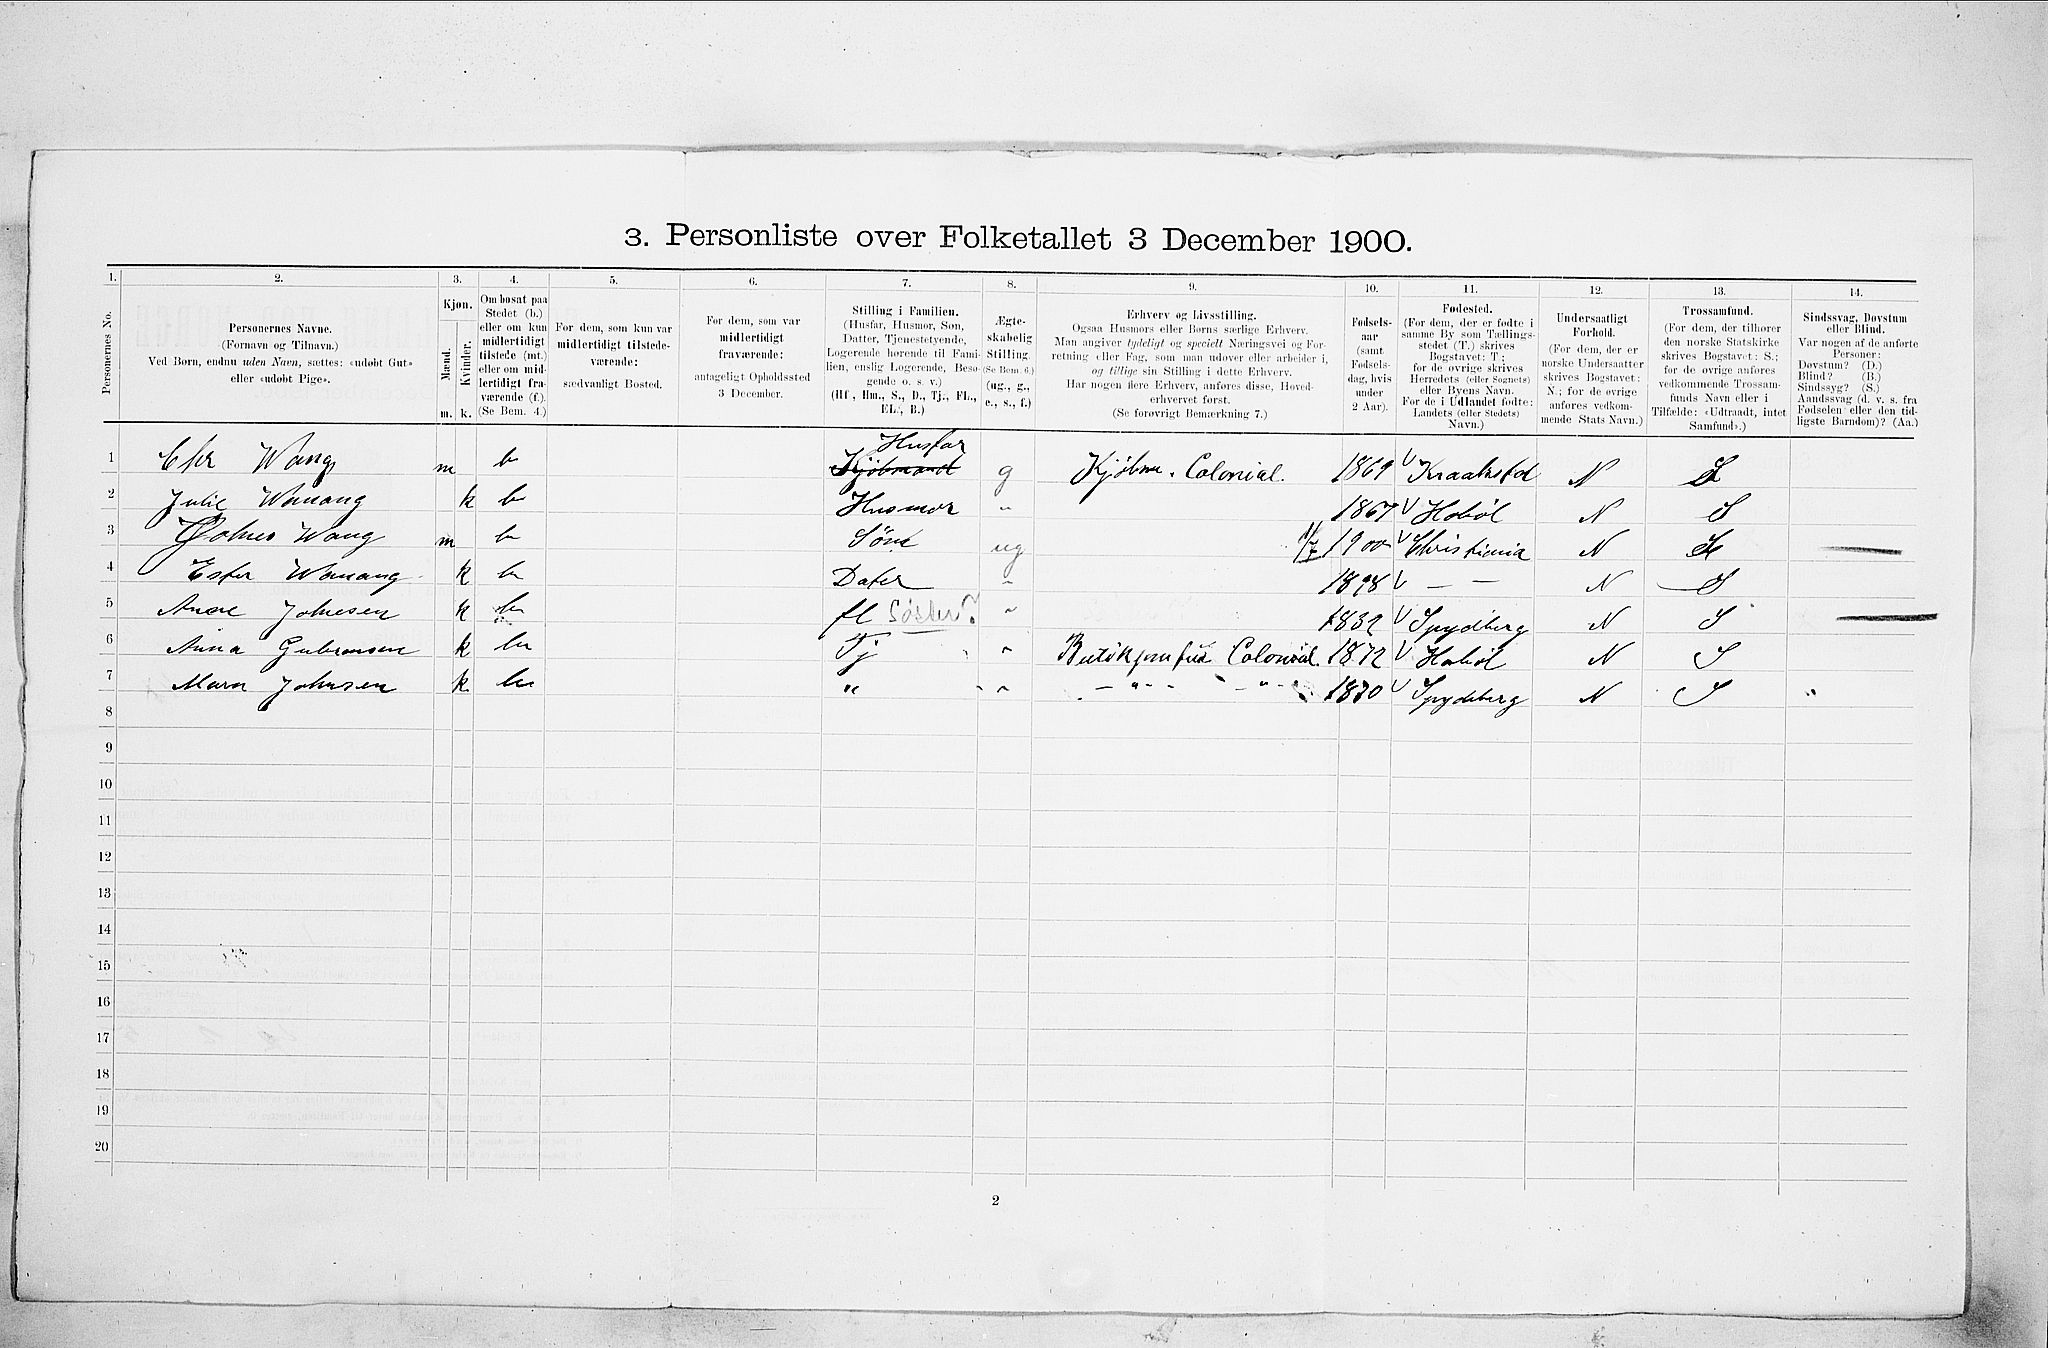 3. Personliste over Folketallet 3 December 1900.
1. 2. 3. 4. 5. 6. 7. 8. 9. 10. 11. 12. 13. 14.
Personernes No.
Personernes Navne.
(Fornavn og Tilnavn.)
Ved Børn, endnu uden Navn, sættes: «udøbt Gut»
eller «udøbt Pige».
Kjøn.
Mænd. Kvinder.
m. k.
Om bosat paa
Stedet (b.)
eller om kun
midlertidigt
tilstede (mt.)
eller om mid-
lertidigt fra-
værende (f.).
(Se Bem. 4.)
For dem, som kun var
midlertidigt tilstede-
værende:
sædvanligt Bosted.
For dem, som var
midlertidigt
fraværende:
antageligt Opholdssted
3 December.
Stilling i Familien.
(Husfar, Husmor, Søn,
Datter, Tjenestetyende,
Logerende hørende til Fami-
lien, enslig Logerende, Besø-
gende o. s. v.)
(Hf., Hm., S., D., Tj., FL.,
EL., B.)
Ægte-
skabelig
Stilling.
(Se Bem. 6.)
(ug., g.,
e., s., f.)
Erhverv og Livsstilling.
Ogsaa Husmors eller Børns særlige Erhverv.
Man angiver tydeligt og specielt Næringsvei og For-
retning eller Fag, som man udover eller arbeider i,
og tillige sin Stilling i dette Erhverv.
Har nogen flere Erhverv, anføres disse, Hoved-
erhvervet først.
(Se forøvrigt Bemærkning 7.)
Fødsels-
aar
(samt
Fødsels-
dag, hvis
under
2 Aar).
Fødested.
(For dem, der er fødte i
samme By som Tællings-
stedet (T.) skrives
Bogstavet: T;
for de øvrige skrives
Herredets (eller Sognets)
eller Byens Navn.
For de i Udlandet fødte:
Landets (eller Stedets)
Navn.)
Undersaatligt
Forhold.
(For dem, der er
norske Undersaatter
skrives Bogstavet:
N.; for de øvrige
anføres vedkom-
mende Stats Navn.)
Trossamfund.
(For dem, der tilhører
den norske Statskirke
skrives Bogstavet: S.;
for de øvrige anføres
vedkommende Trossam-
funds Navn eller i
Tilfælde: «Udtraadt, intet
Samfund».)
Sindssvag, Døvstum
eller Blind.
Var nogen af de anførte
Personer:
Døvstum? (D.)
Blind? (B.)
Sindssyg? (S.)
Aandssvag (d. v. s. fra
Fødselen eller den tid-
ligste Barndom)? (Aa.)
1 Chr Wang m b Husfar Kjøbmand g Kjøbm. Colonial. 1869 Kraakstad N S
2 Julie Wang k b Husmor " 1867 Hobøl N S
3 Wang m b Søn ug 11/7 1900 Christiania N S
4 Ester Wang k b Dater " 1898 — — N S
5 Johnesen k b fl Søster? " 1832 Spydberg N S
6 Anna Gubransen k b Tj " Butikjomfru Colonial. 1872 Hobøl N S
7 Johnsen k b " " — " — — " — 1870 Spydeberg N S
8
9
10
11
12
13
14
15
16
17
18
19
20
2